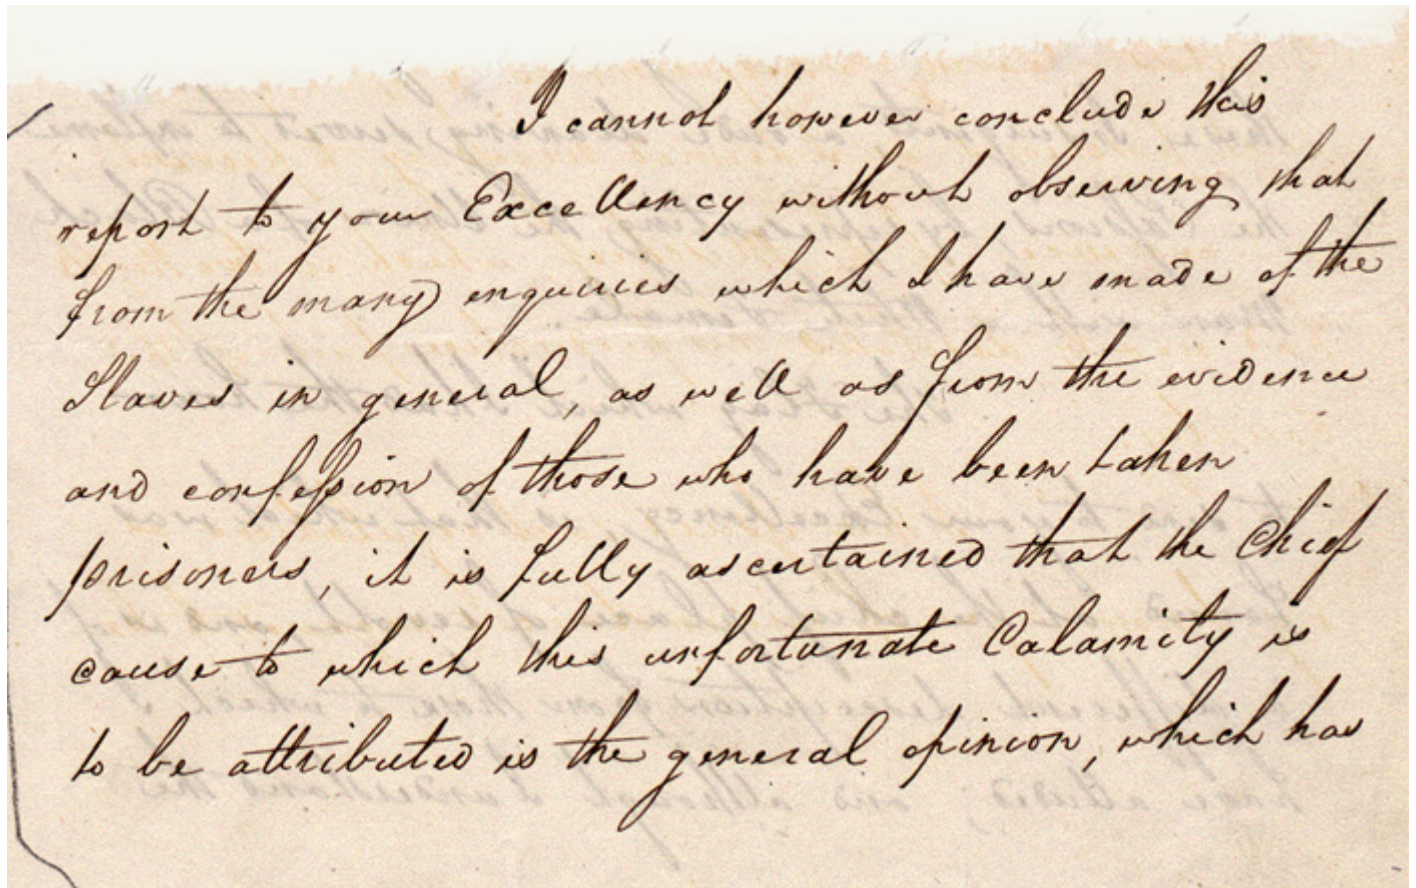 I cannot however conclude this
report to your Excellency without observing that
from the many enquiries which I have made of the
Slaves in general, as well as from the evidence
and confession of those who have been taken
prisoners, it is fully ascertained that the Chief
cause to which this unfortunate Calamity is
to be attributed is the general opinion, which has